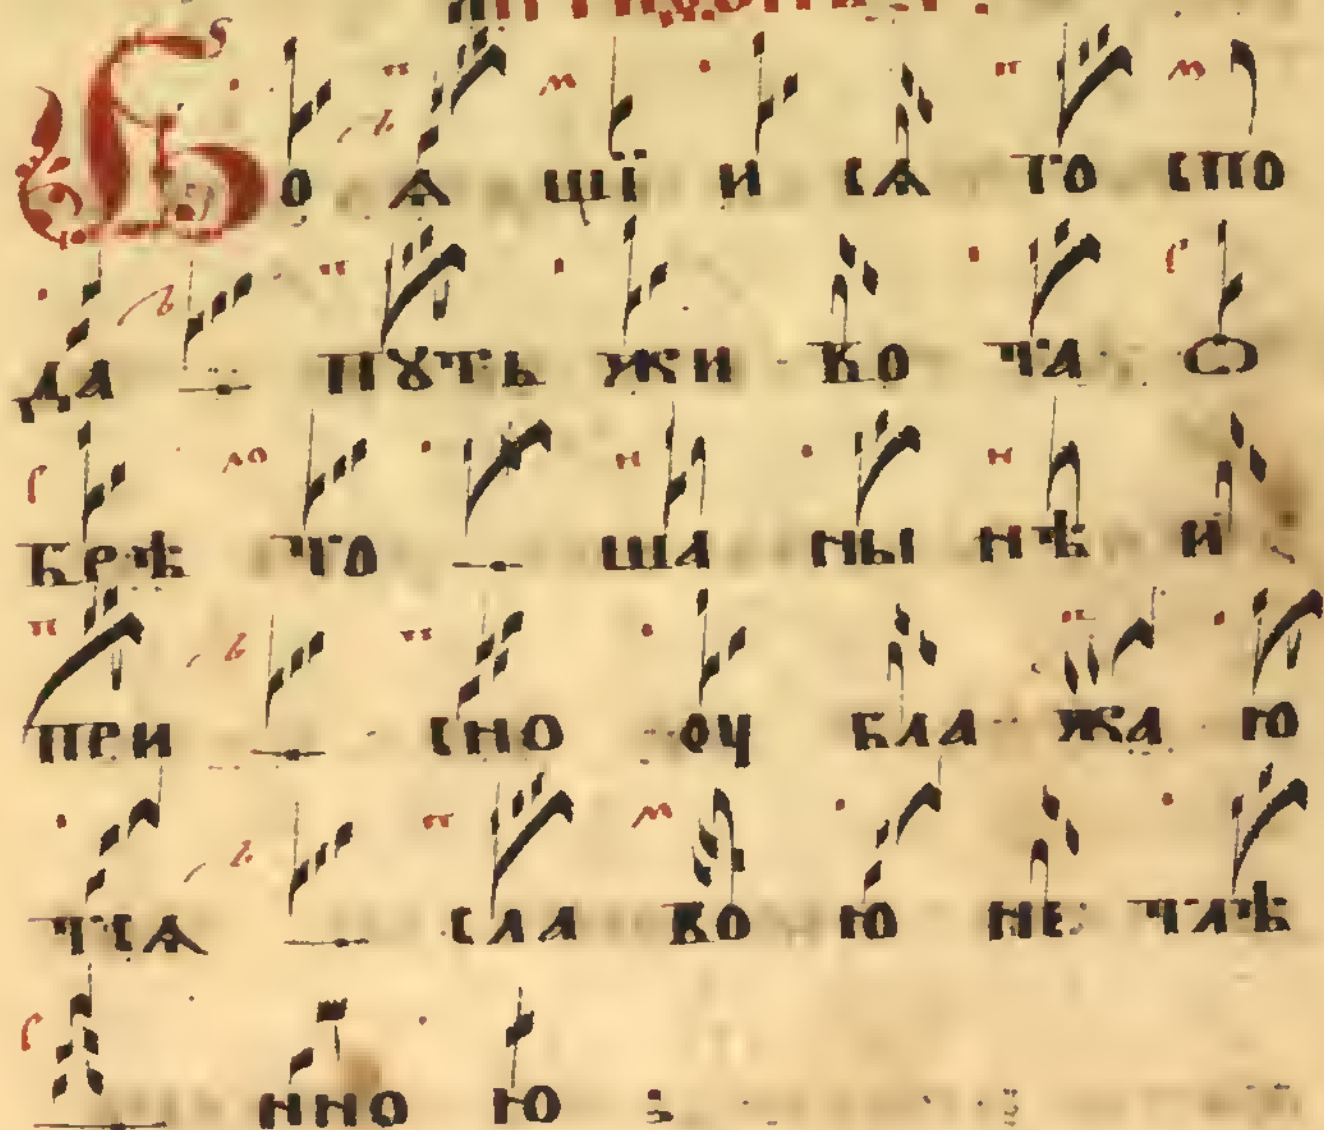 Боѧщїисѧ госпо
да путь живота ѡ
брѣтоша нынѣ и
присно оублажаю
тсѧ славою нетлѣ
нною